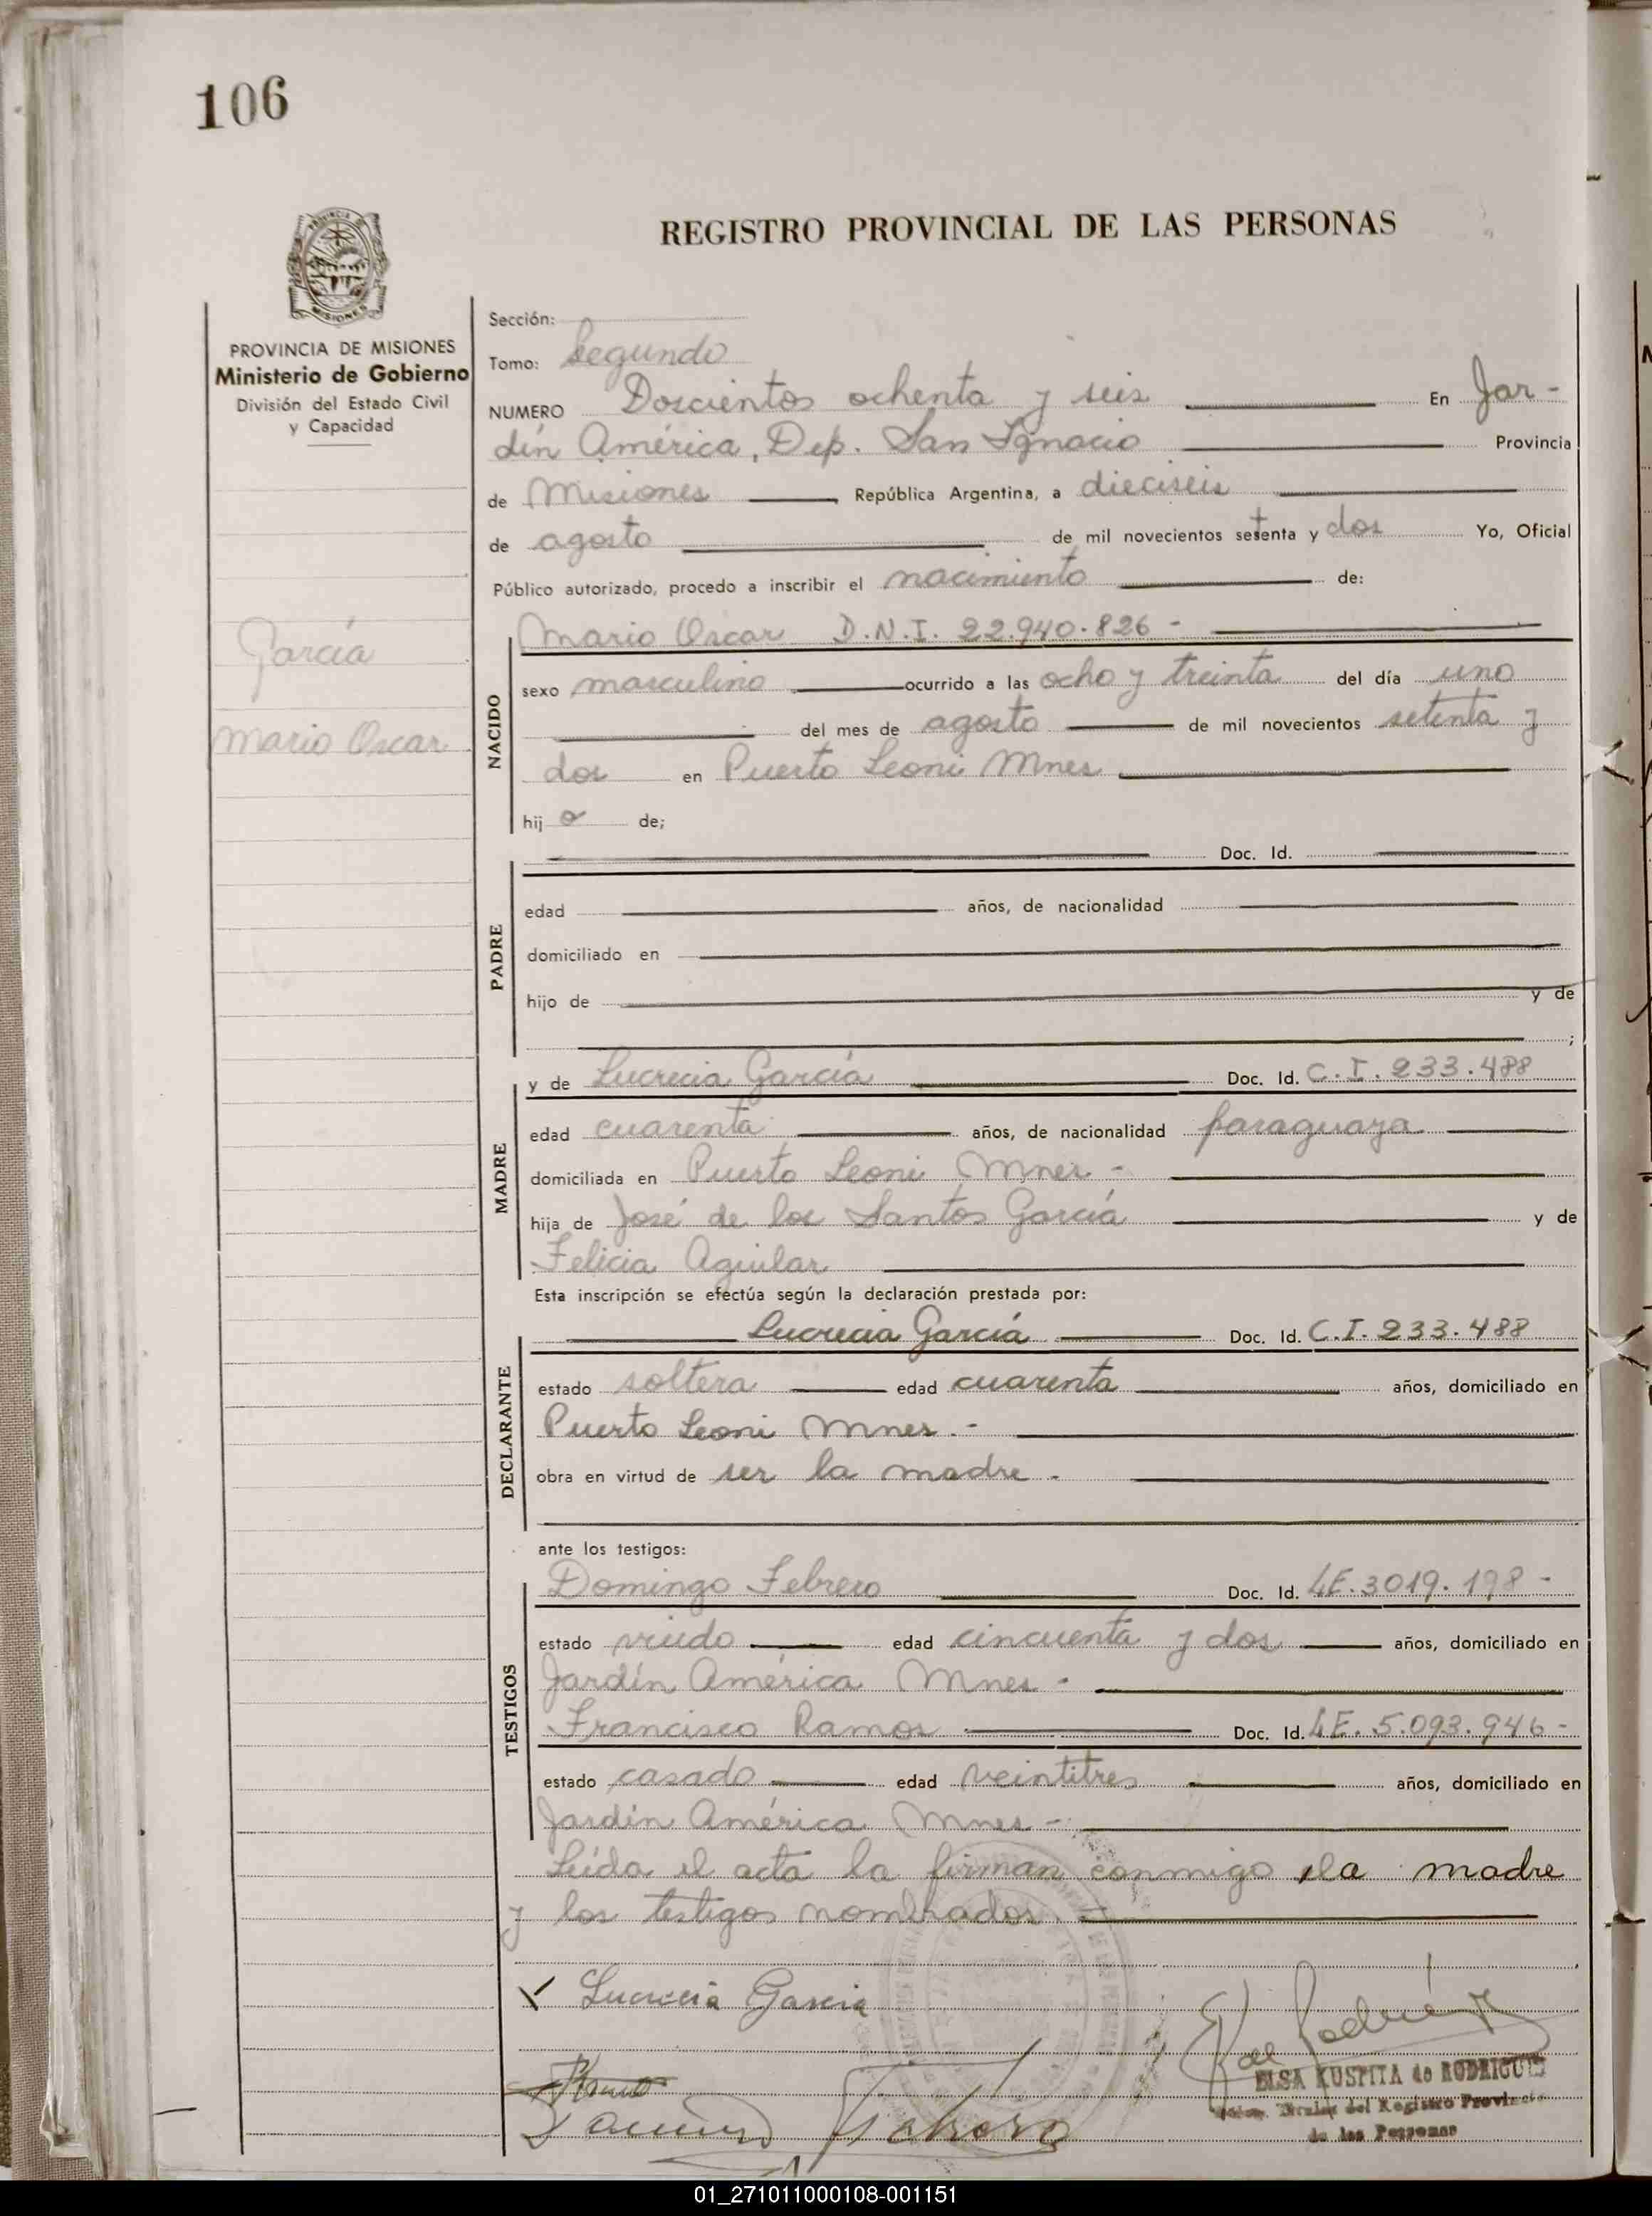 106
REGISTRO PROVINCIAL DE LAS PERSONAS
PROVINCIA DE MISIONES
Ministerio de Gobierno
División del Estado Civil
y Capacidad
García
Mario Oscar
Sección:
Tomo: Segundo
NUMERO Doscientos ochenta y seis En Jar-
dín América, Dep. San Ignacio Provincia
de Misiones República Argentina, a dieciseis
de agosto de mil novecientos setenta y dos Yo, Oficial
Público autorizado, procedo a inscribir el nacimiento de:
Mario Oscar D.N.I. 22.940.826 -
NACIDO
sexo masculino ocurrido a las ocho y treinta del día uno
del mes de agosto de mil novecientos setenta y
dos en Puerto Leoni Mnes
hij o de;
Doc. Id.
PADRE
edad años, de nacionalidad
domiciliado en
hijo de y de
;
MADRE
y de Lucrecia García Doc. Id. C.I. 233.488
edad cuarenta años, de nacionalidad paraguaya
domiciliada en Puerto Leoni Mnes -
hija de José de los Santos García y de
Felicia Aguilar
Esta inscripción se efectúa según la declaración prestada por:
DECLARANTE
Lucrecia García Doc. Id. C.I. 233.488
estado soltera edad cuarenta años, domiciliado en
Puerto Leoni Mnes. -
obra en virtud de ser la madre.
ante los testigos:
TESTIGOS
Domingo Febrero Doc. Id. LE. 3019.198 -
estado viudo edad cincuenta y dos años, domiciliado en
Jardín América Mnes -
Francisco Ramos Doc. Id. LE. 5.093.946 -
estado casado edad veintitres años, domiciliado en
Jardín América Mnes -
Leída el acta la firman conmigo la madre
y los testigos nombrados. -
Lucrecia Garcia
ELSA KUSPITA de RODRIGUEZ
del Registro Provincial
de las Personas
01_271011000108-001151